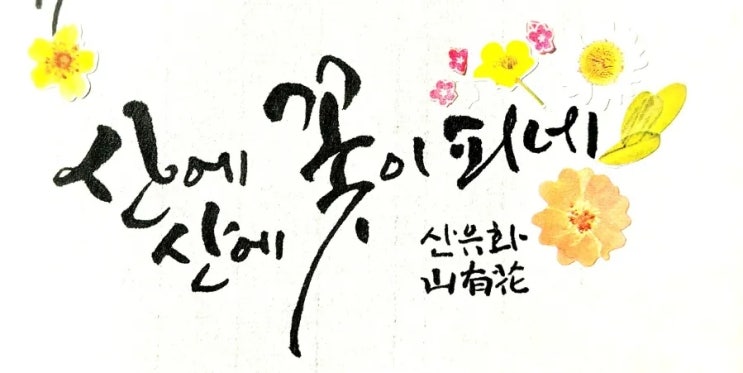 산에
산에 꽃이 피네
산유화
山有花